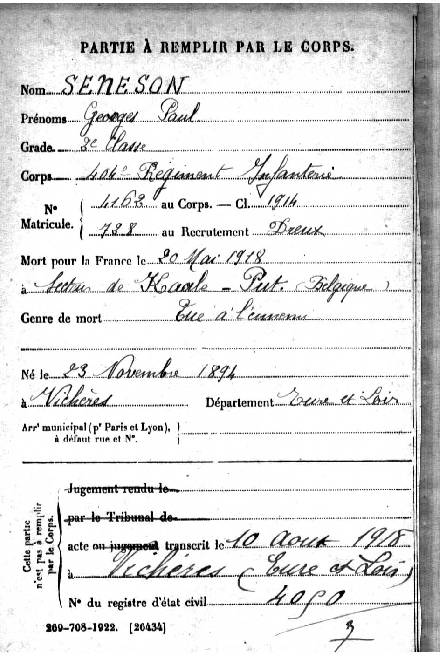 PARTIE À REMPLIR PAR LE CORPS.
Nom SENESON
Prénoms Georges Paul
Grade 2e Classe
Corps 404e Régiment Infanterie
No Matricule. 4162 au Corps. — Cl. 1914
728 au Recrutement Dreux
Mort pour la France le 20 Mai 1918
à Secteur de - Put. (Belgique)
Genre de mort Tué à l'ennemi
Né le 23 Novembre 1894
à Vichères Département Eure et Loir
Arrt municipal (pr Paris et Lyon),
à défaut rue et No.
Cette partie
n'est pas à remplir
par le Corps.
Jugement rendu le
par le Tribunal de
acte ou jugement transcrit le 10 Août 1918
à Vichères (Eure et Loir)
No du registre d'état civil 4090
269-708-1922. [26434]